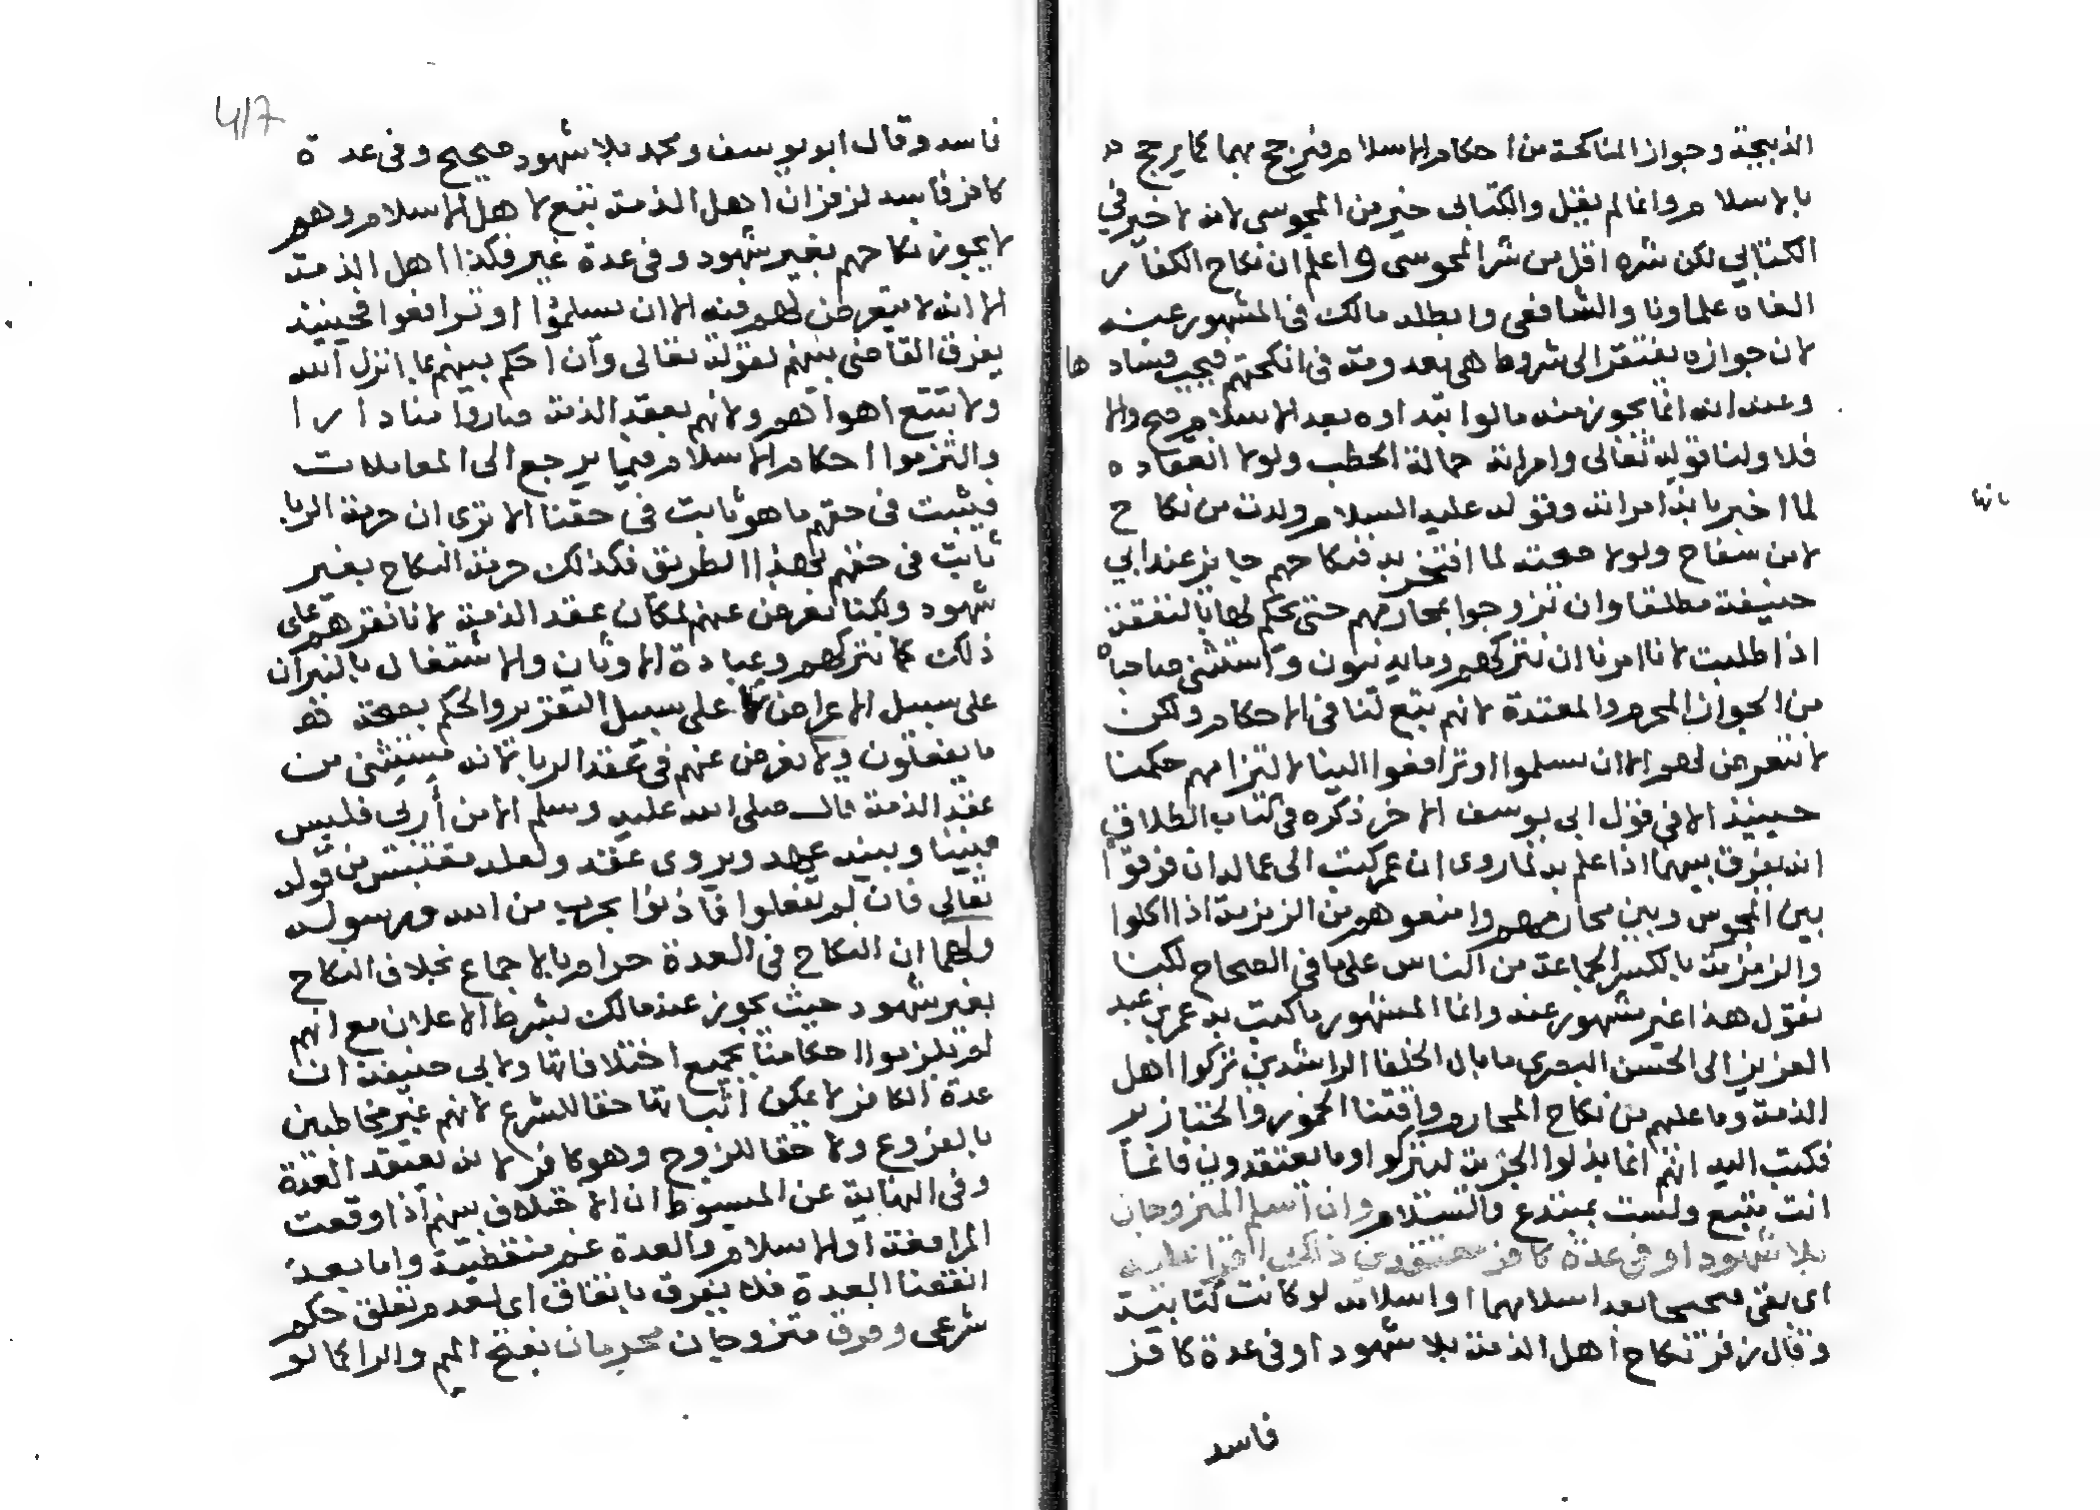 الذبيحة وجواز المناكحة من احكام الاسلام فيترجح بهما كما يرجح
بالاسلام وانما لم يقل والكتابى خير من المجوسى لانه لا خير في
الكتابي لكن شره اقل من شر المجوسى واعلم ان نكاح الكفار
الفاه علماونا والشافعى وابطله مالك فى المشهور عنه
لان جوازه يفتقر الى شروط هى معدومة فى انكحتهم فيجب فسادها
وعنه انه انما يجوز منه ما لو ابتداوه بعد الاسلام صح والا
فلا ولنا قوله تعالى وامراته حمالة الحطب ولولا انعقاده
لما اخبر بانه امراته وقوله عليه السلام ولدت من نكاح
لا من سفاح ولولا صحته لما افتخر به فنكاحهم جايز عند ابي
حنيفة مطلقا وان تزوجوا بمحارمهم حتى يحكم لها بالنفقة
اذا طلبت لانا امرنا ان نتركهم وما يدينون واستثنى صاحباه
من الجواز المحرم والمعتدة لانهم تبع لنا فى الاحكام ولكن
لا نتعرض لهم الا ان يسلموا او ترافعوا الينا لالتزامهم حكمنا
حينيذ الا في قول ابى يوسف الاخر ذكره في كتاب الطلاق
انه يفرق بينهما اذا علم به لما روى ان عمر كتب الى عماله ان فرقوا
بين المجوس وبين محارمهم وامنعوهم من الزمزمة اذا اكلوا
والزمزمة بالكسر الجماعة من الناس على ما فى الصحاح لكنا
نقول هذا غير مشهور عنه وانما المشهور ما كتب به عمر بن عبد
العزيز الى الحسن البصري ما بال الخلفا الراشدين تركوا اهل
الذمة وما عليهم من نكاح المحارم واقتنا الخمور والخنازير
فكتب اليه انهم انما بذلوا الجزية ليتركوا وما يعتقدون فانما
انت متبع ولست بمبتدع والسلام وان اسلم المتزوجان
بلا شهود او في عدة كافر معتقدين ذلك اقرا عليه
اى بقى صحيحا بعد اسلامهما او اسلامه لو كانت كتابية
وقال زفر نكاح اهل الذمة بلا شهود او فى عدة كافر
فاسد
فاسد وقال ابو يوسف ومحمد بلا شهود صحيح وفى عدة
كافر فاسد لزفر ان اهل الذمة تبع لاهل الاسلام وهم
لا يجوز نكاحهم بغير شهود وفى عدة غير فكذا اهل الذمة
الا انه لا يتعرض لهم فيه الا ان يسلموا او ترافعوا فحينيذ
يفرق القاضى بينهم لقوله تعالى وان احكم بينهم بما انزل الله
ولا تتبع اهواءهم ولانهم بعقد الذمة صاروا منا دارا
والتزموا احكام الاسلام فيما يرجع الى المعاملات
فيثبت فى حقهم ما هو ثابت فى حقنا الا ترى ان حرمة الربا
ثابت فى حقهم لهذا الطريق فكذلك حرمة النكاح بغير
شهود ولكنا نعرض عنهم لمكان عقد الذمة لانا نقرهم على
ذلك كما نتركهم وعبادة الاوثان والاشتغال بالنيران
على سبيل الاعراض لا على سبيل التقرير والحكم بصحة
ما يفعلون ولا نعرض عنهم في عقد الربا لانه مستثنى من
عقد الذمة قال صلى الله عليه وسلم الا من أربى فليس
بيننا وبينه عهد ويروى عقد ولعله مقتبس من قوله
تعالى فان لم تفعلوا فاذنوا بحرب من الله ورسوله
ولهما ان النكاح فى العدة حرام بالاجماع بخلاف النكاح
بغير شهود حيث يجوز عند مالك بشرط الاعلان مع انهم
لم يلتزموا احكامنا بجميع اختلافاتها ولابى حنيفة ان
عدة الكافر لا يمكن اثباتها حقا للشرع لانهم غير مخاطبين
بالفروع ولا حقا للزوج وهو كافر لا يعتقد العدة
وفى النهاية عن المبسوط ان الاختلاف بينهم اذا وقعت
المرافعة او الاسلام والعدة غير منقضية واما بعد
انقضا العدة فلا يفرق باتفاق اى لعدم تعلق حكم
شرعى وفرق متزوجان محرمان بفتح الميم والرا كما لو